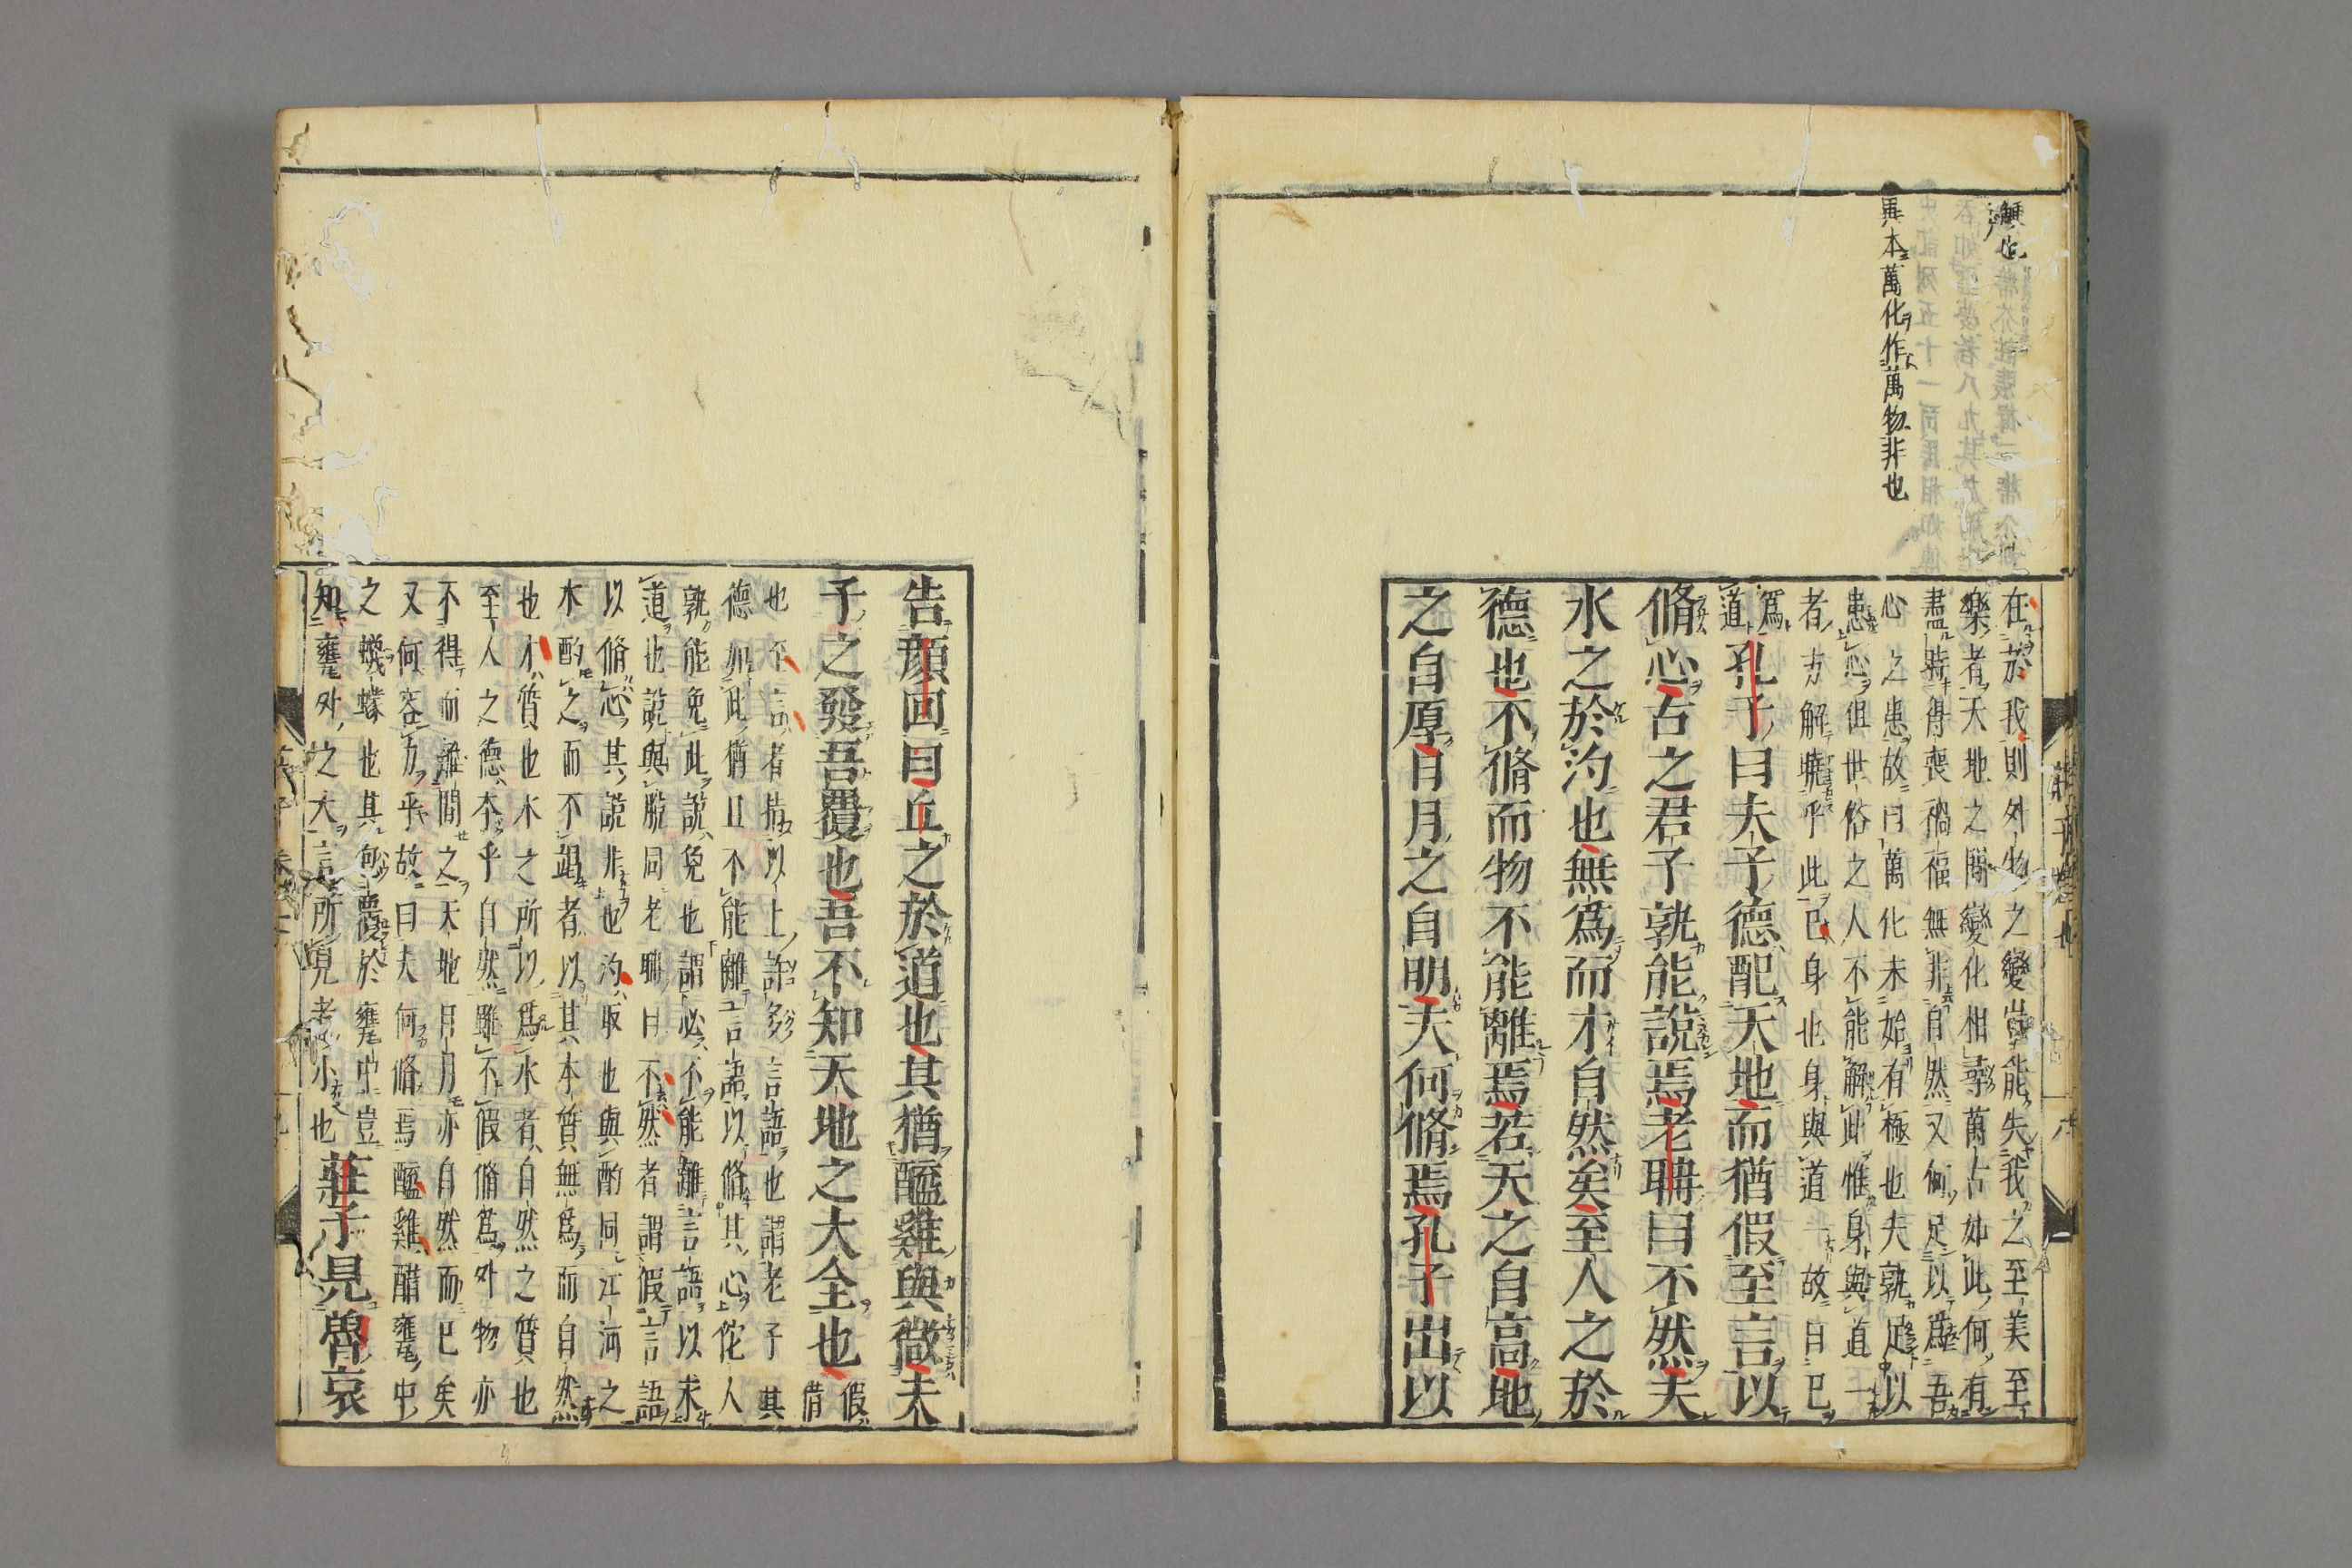 異本萬化作萬物非也
在於我則外物之變豈能失我之至美至
樂者天地之間變化相尋萬古如此何有
盡時得喪禍福無非自然又何足以爲吾
心之患故曰萬化未始有極也夫孰足以
患心但世俗之人不能解此惟身與道一
者方解曉乎此已身也身與道一故曰已
爲道
孔子曰夫子德配天地而猶假至言以
脩心古之君子孰能說焉老聃曰不然夫
水之於汋也無爲而才自然矣至人之於
德也不脩而物不能離焉若天之自高地
之自厚日月之自明夫何脩焉孔子出以
告顔回曰丘之於道也其猶醯雞與微夫
子之發吾覆也吾不知天地之大全也
假借
也至言者指以上許多言語也謂老子其
德如此猶且不能離言語以脩其心佗人
孰能免此說免也謂必不能離言語以求
道也說與脫同老聃曰不然者謂假言語
以脩心其說非也汋取也與酌同江河之
水酌之而不竭者以其本質無爲而自然
也才質也水之所以爲水者自然之質也
至人之德本乎自然雖不假脩爲外物亦
不得而離間之天地日月亦自然而已矣
又何容力乎故曰夫何脩焉醯雞醋甕中
之蠛蠓也其飽覆於甕中豈
知甕外之大言所見者小也
莊子見魯哀